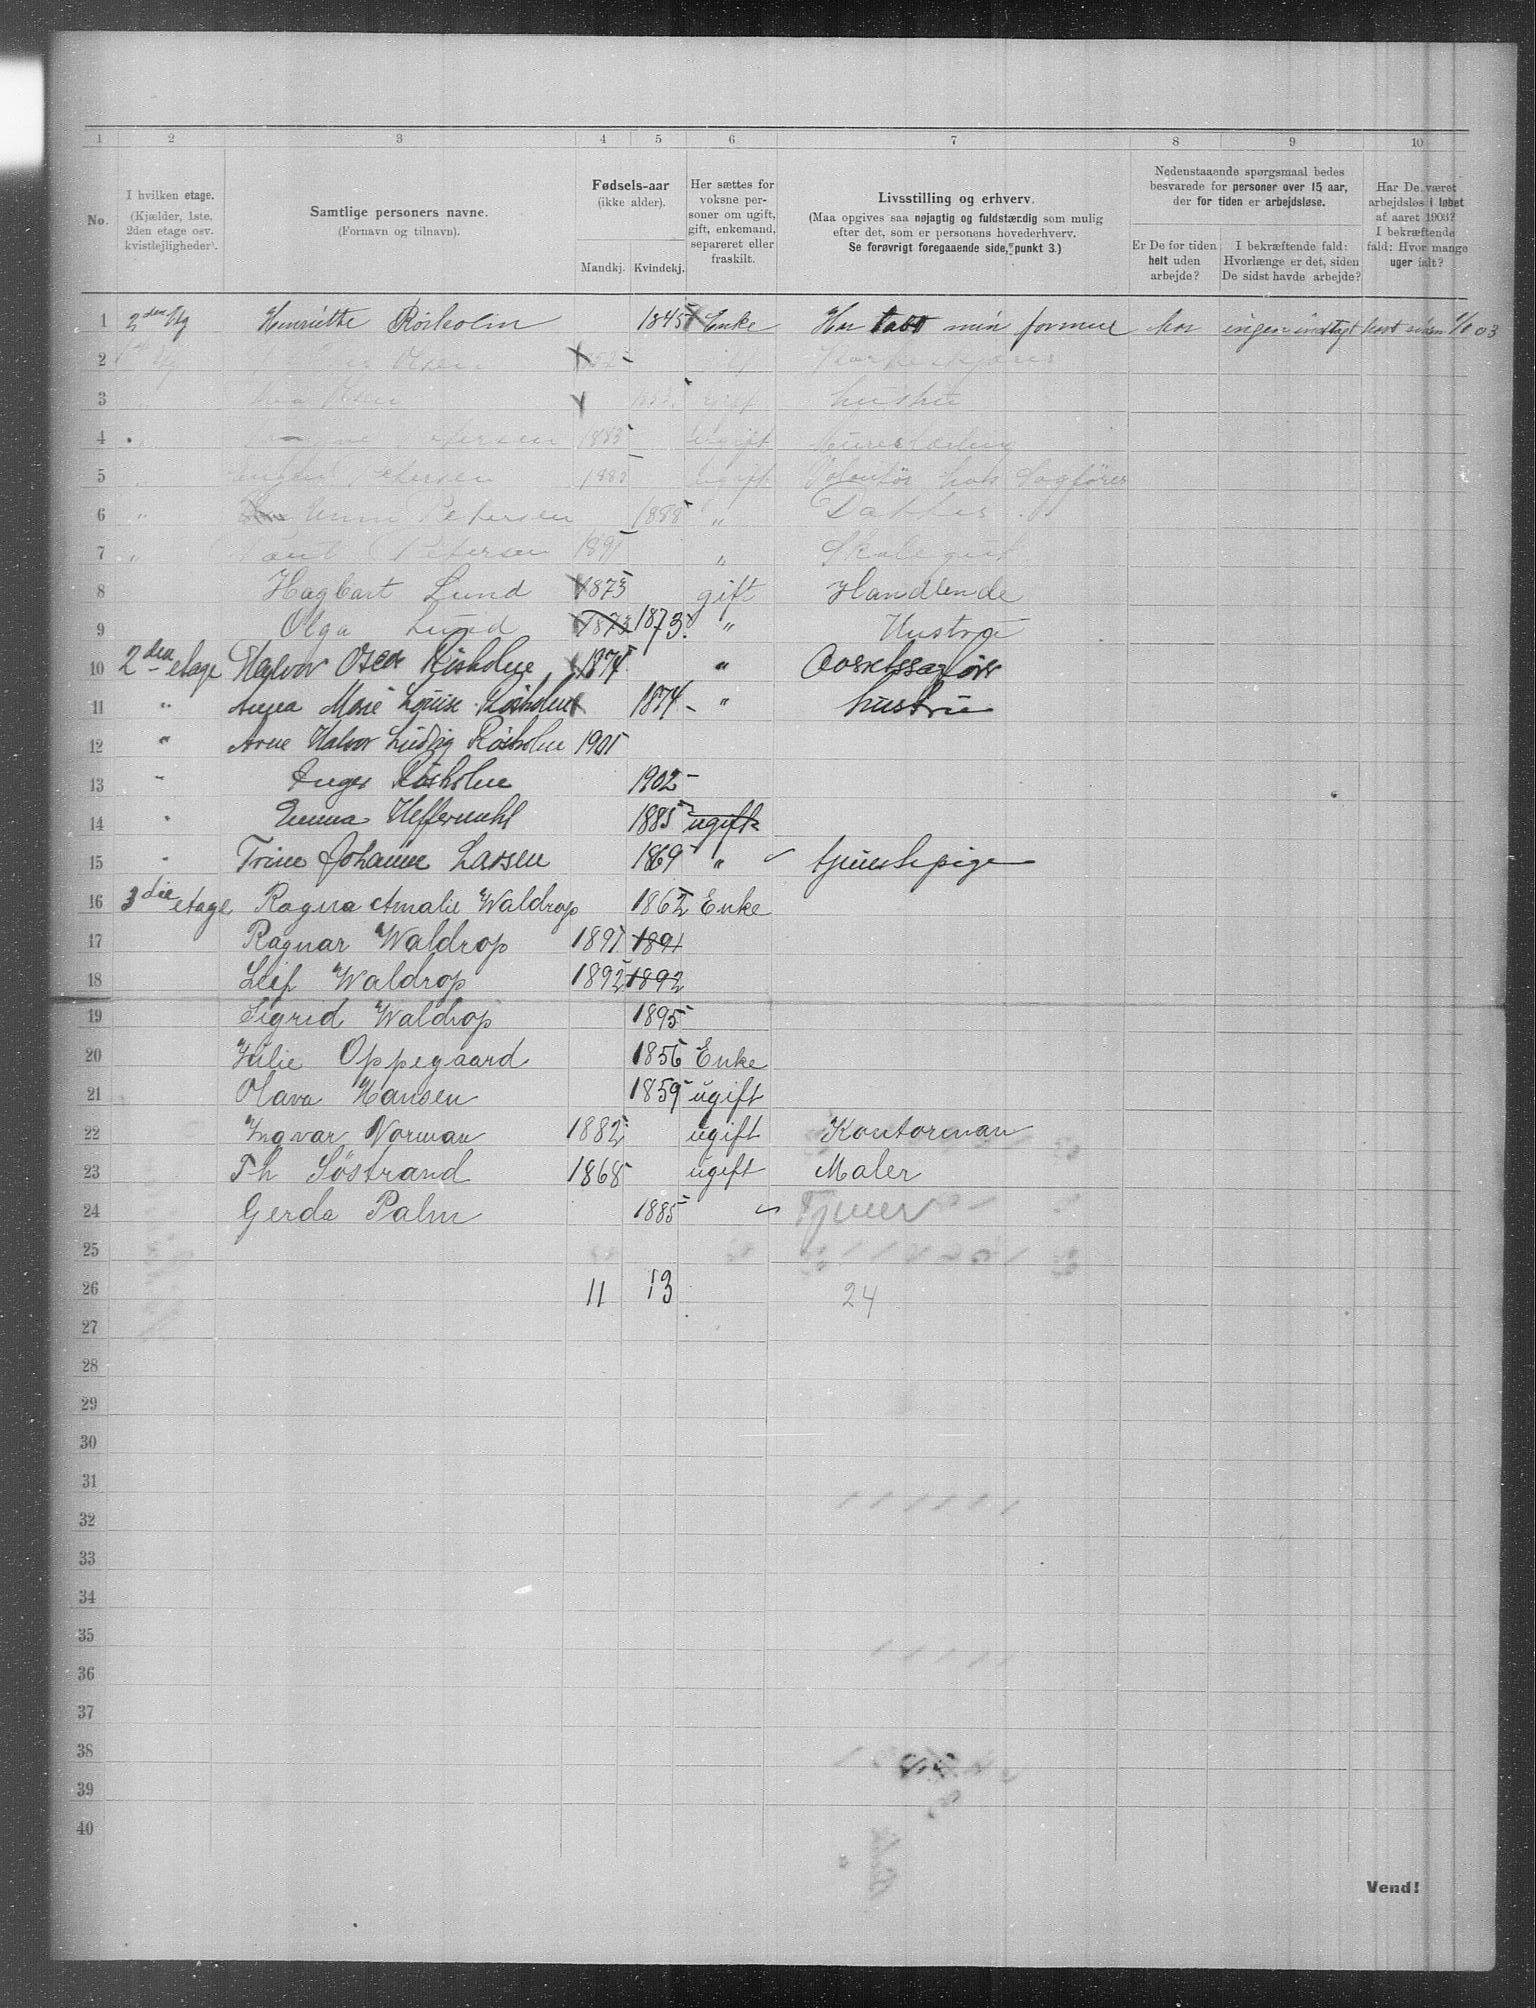 1 2 3 4 5 6 7 8 9 10
No.
I hvilken etage.
(Kjælder, 1ste,
2den etage osv.
kvistlejligheder).
Samtlige personers navne.
(Fornavn og tilnavn).
Fødsels-aar
(ikke alder).
Mandkj. Kvindekj.
Her sættes for
voksne per-
soner om ugift,
gift, enkemand,
separeret eller
fraskilt.
Livsstilling og erhverv.
(Maa opgives saa nøjagtig og fuldstærdig som mulig
efter det, som er personens hovederhverv.
Se forøvrigt foregaaende side, punkt 3.)
Nedenstaaende spørgsmaal bedes
besvarede for personer over 15 aar,
der for tiden er arbejdsløse.
Er De for tiden
helt uden
arbejde?
I bekræftende fald:
Hvorlænge er det, siden
De sidst havde arbejde?
Har De været
arbejdsløs i løbet
af aaret 1903?
I bekræftende
fald: Hvor mange
uger ialt?
1 Henriette Rösholm 1845 Enke Har tabt min formue har ingen indtægt havt siden 1/1 03
2 Olsen
3 Olsen Gift hustru
4 Petersen 1883 ugift
5 Petersen 1883 ugift hos Sagfører
6 Petersen 1888 " Datter
7 " Petersen 1891 "
8 Hagbart Lund 1873 gift Handlende
9 Olga Lund 1873 1873 " Hustru
10 2den etage Halvor Oscar Rösholm 1874 "
11 " Anna Marie Louise Rösholm 1874 " hustru
12 " Arne Halvor Ludvig Rösholm 1901
13 " Inger Rösholm 1902
14 " Emma Heffermehl 1885 ugift
15 " Trine Johanne Larsen 1869 " tjenestepige
16 3die etage Ragna Amalie Waldrop 1862 Enke
17 Ragnar Waldrop 1891 1891
18 Leif Waldrop 1892 1892
19 Sigrid Waldrop 1895
20 Julie Oppegaard 1856 Enke
21 Olava Hansen 1859 ugift
22 Ingvar Norman 1882 ugift Kontorman
23 Th Söstrand 1868 ugift Maler
24 Gerda Palm 1885 Tjener
25
26 11 13 24
27
28
29
30
31
32
33
34
35
36
37
38
39
40
Vend!